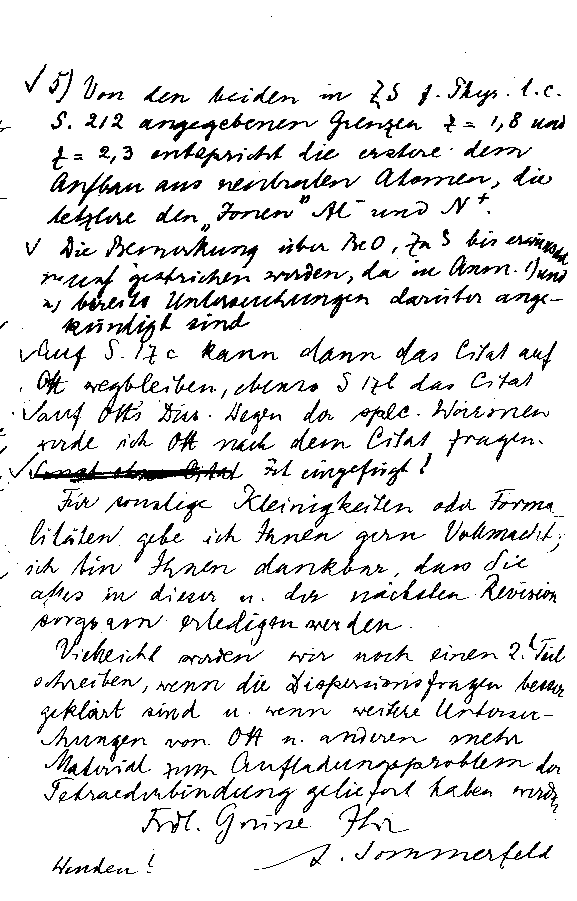 ✓ 5) Von den beiden in ZS f. Phys. l.c.
S. 212 angegebenen Grenzen z = 1,8 und
z = 2,3 entspricht die erstere dem
Aufbau aus neutralen Atomen, die
letztere den „Ionen" Al⁻ und N⁺.
✓ Die Bemerkung über BeO, ZnS bis
gestrichen werden, da in Anm. 1) und
2) bereits Untersuchungen darüber ange-
kündigt sind
✓ Auf S. 17c kann dann das Citat auf
Ott wegbleiben, ebenso S 17b das Citat
✓ auf Otts Diss. Wegen der spec. Wärmen
werde ich Ott nach dem Citat fragen.
✓ Ist eingefügt!
Für sonstige Kleinigkeiten oder Forma-
litäten gebe ich Ihnen gern Vollmacht;
ich bin Ihnen dankbar, dass Sie
alles in dieser u. der nächsten Revision
sorgsam erledigen werden.
Vielleicht werden wir noch einen 2. Teil
schreiben, wenn die Dispersionsfragen besser
geklärt sind u. wenn weitere Untersu-
chungen von Ott u. anderen mehr
Material zum Aufladungsproblem der
Tetraederbindung geliefert haben werden
Frdl. Grüsse Ihr
A. Sommerfeld
Wenden!